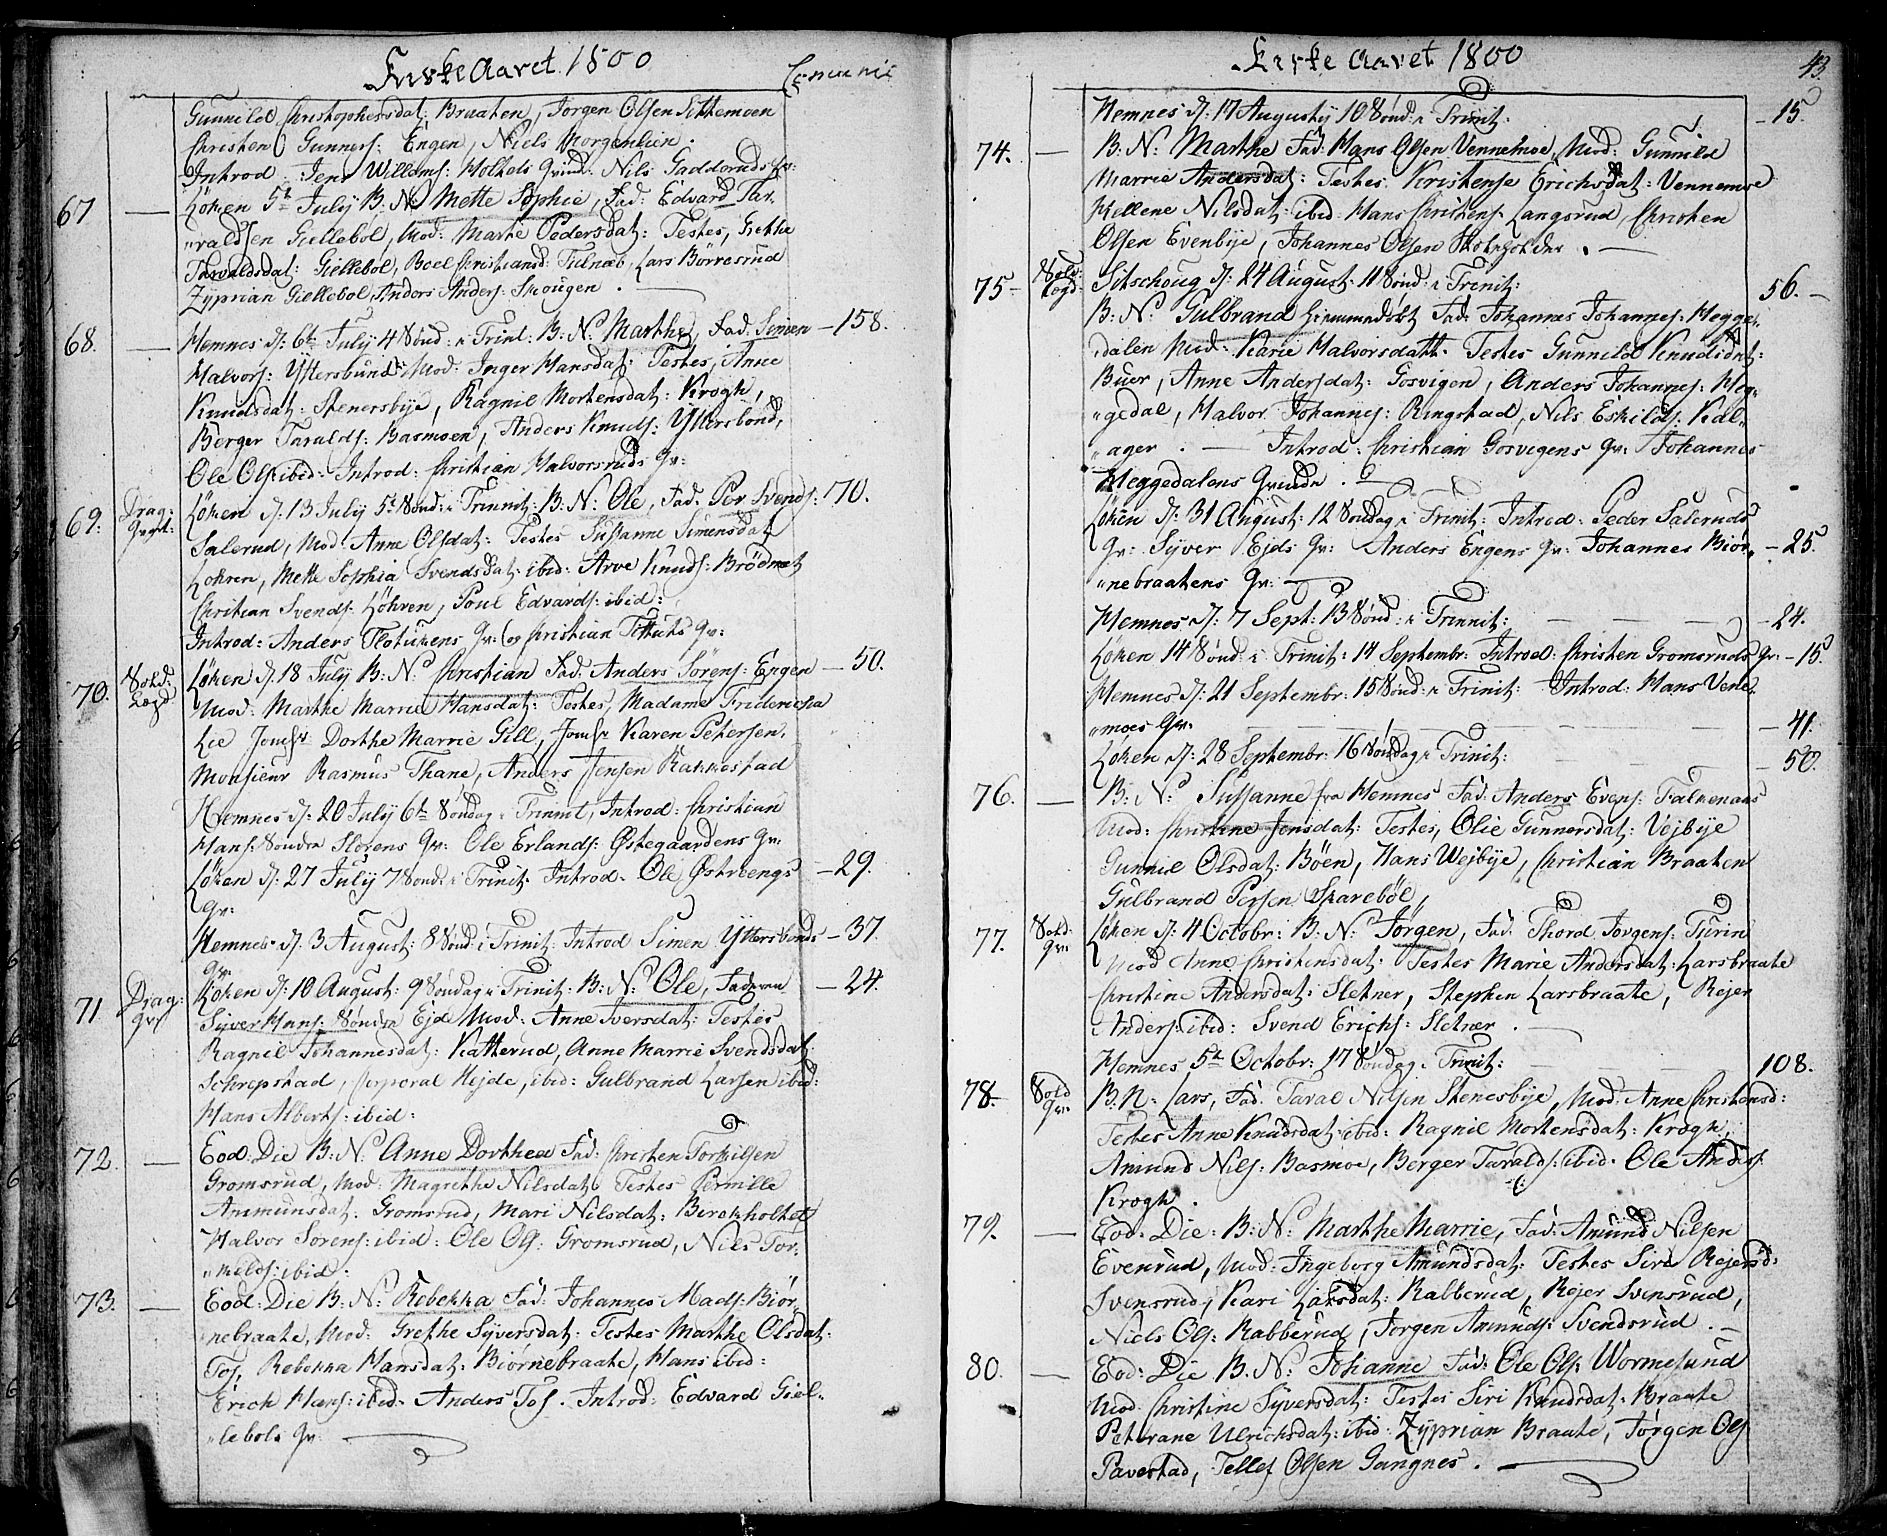 Kirke Aaret 1800
Communic
Gunnild Christophersdat: Braaten, Jørgen Olsen Sittemoen
Christen Gunners: Engen, Niels Morgenlien.
Introd: Jens Willdms: Holtets Qvinde. Nils Gaddoruds Qv:
67 — Løken 5te July B: N: Mette Sophie, Fad: Edvard Tar-
"valdsen Giellebøl, Mod: Marte Pedersdat: Testes, Grethe
Tarvaldsdat: Giellebøl, Boel Christiansd: Tulnæs, Lars Børresrud
Zyprian Giellebøl, Anders Anders: Skougen.
68. — Hemnes d: 6te July 4 Sønd: e Trinit: B: N: Marthe, Fad: Simen — 158.
Halvors: Yttersbund Mod: Inger Hansdat: Testes, Anne
Knudsdat: Stenersbye, Ragnil Mortensdat: Krogh,
Berger Taralds: Basmoen, Anders Knuds: Yttersbønd,
Ole Ols: ibid: Introd: Christian Halvorsruds Qv:
69. Drag: Qvart: Løken d: 13 July 5te Sønd: e Trinnit: B: N: Ole, Fad: Per Svends: 70.
Salerud, Mod: Anne Olsdat: Testes Sussanne Simensdat
Løkren, Mette Sophia Svendsdat: ibid: Arve Knuds: Brødnæt
Christian Svends: Løhren, Poul Edvards: ibid:
Introd: Anders Flotukens Qv: og Christian Tittuts Qv:
70. Sold: Lægd Løken d: 18 July B: N: Christian Fad: Anders Sørens: Engen — 50.
Mod: Marthe Marrie Hansdat: Testes, Madame Fridericha
Lie Jomfr Dorthe Marrie Gill, Jomfr Karen Petersen,
Monsieur Rasmus Thane, Anders Jensen Rakkestad
Hemnes d: 20 July 6te Søndag e Trinnit, Introd: Christian
Hans: Søndre Slorens Qv: Ole Erlands: Østegaardens Qv:
Løken d: 27 July 7 Sønd: e Trinit: Introd: Ole Østreengs — 29.
Qv:
Hemnes d: 3 August: 8 Sønd: e Trinit: Introd Simen Yttersbonds — 37.
Qv:
71. Drag: Qv: Løken d: 10 August: 9 Søndag e Trinit: B: N: Ole, Fad — 24.
Syver Hans: Søndre Ejde Mod: Anne Iversdat: Testes
Ragnil Johannesdat: Katterud, Anne Marrie Svendsdat:
Schrepstad, Corporal Hejde, ibid: Gulbrand Larsen ibid:
Hans Alberts: ibid:
72. — Eod: Die B: N: Anne Dorthea Fad: Christen Torkilsen
Gromsrud, Mod: Magrethe Nilsdat: Testes Pernille
Ammunsdat: Gromsrud, Mari Nilsdat: Berekholtet
Halvor Sørens: ibid: Ole Ols: Gromsrud, Niels Tor-
"kilds: ibid:
73. — Eod: Die B: N: Rebekka Fad: Johannes Mads: Biør-
"nebraate, Mod: Grethe Syversdat: Testes Marthe Olsdat:
Tos, Rebekka Hansdat: Biørnebraate, Hans ibid:
Erich Hans: ibid: Anders Tos. Introd: Edvard Giel-
"lebøls Qv:
Kirke Aaret 1800
43
Hemnes d: 17 Augusty 10 Sønd: e Trinit: — 15.
74. — B: N: Marthe Fad: Hans Olsen Vennemoe, Mod: Gunnild
Marrie Andersdat: Testes Kristense Erichsdat: Vennemoe
Hellene Nilsdat: ibid: Hans Christens: Langsrud, Christen
Olsen Evenbye, Johannes Olsen
75 — Sold: Lægd: Sitschoug d: 24 August: 11 Sønd: e Trinit: 56. —
B: N: Gulbrand hiemmedøbt Fad: Johannes Johannes: Hegge-
"dalen Mod: Karie Halvorsdatt: Testes Gunnild Knudsdat:
Buer, Anne Andersdat: Gosvigen, Anders Johannes: Heg-
"gedal, Halvor Johannes: Ringstad, Nils Eskilds: Kal-
"ager. — Introd: Christian Gosvigens Qv: Johannes
Heggedalens Qvinde.
Løken d: 31 August: 12 Søndag e Trinit: Introd: Peder Saleruds
Qv: Syver Ejds Qv: Anders Engens Qv: Johannes Biør- — 25.
"nebraatens Qv:
Hemnes d: 7 Sept: 13 Sønd: e Trinnit: — 24.
Løken 14 Sønd: e Trinit: 14 Septembr: Introd: Christen Gromsruds Qv: — 15.
Hemnes d: 21 Septembr: 15 Sønd: e Trinit: Introd: Hans Vene-
"moes Qv: — 41.
Løken d: 28 Septembr: 16 Søndag e Trinit: — 50.
76. — B: N: Sussanne fra Hemnes Fad: Anders Evens: Falkenaas
Mod: Christine Jensdat: Testes, Olie Gunnersdat: Vejbye
Gunnil Olsdat: Bøen, Hans Wejbye, Christian Braaten
Gulbrand Persen Skarebøl,
77. Sold: Qv: Løken d: 4 Octobr: B: N: Jørgen, Fad: Thord Jørgens: Turin
Mod Anne Christensdat: Testes Marie Andersdat: Larsbraate
Christine Andersdat: Sletner, Stephen Larsbraate, Rejer
Anders: ibid: Svend Erichs: Sletner.
Hemnes 5te Octobr: 17 Søndag e Trinit: 108.
78. Sold Qv: B: N: Lars, Fad: Taral Nilsen Stenesbye, Mod: Anne Christensd:
Testes Anne Knudsdat: ibid: Ragnil Mortensdat: Krogh,
Amund Nils: Basmoe, Berger Taralds: ibid: Ole Anders:
Krogh.
79. — Eod: Die: B: N: Marthe Marrie, Fad: Amund Nilsen
Evenrud, Mod: Ingeborg Amundsdat: Testes Siri Rejersd:
Svensrud, Kari Larsdat: Rabberud, Rejer Svensrud,
Niels Ols: Rabberud, Jørgen Amunds: Svendsrud.
80. — Eod: Die B: N: Johanne Fad: Ole Ols: Wormesund
Mod: Christine Syversdat: Testes Siri Knudsdat: Braate
Peterane Ulrichsdat: ibid: Zyprian Braate, Jørgen Ols:
Pavestad, Tellef Olsen Gangnes.